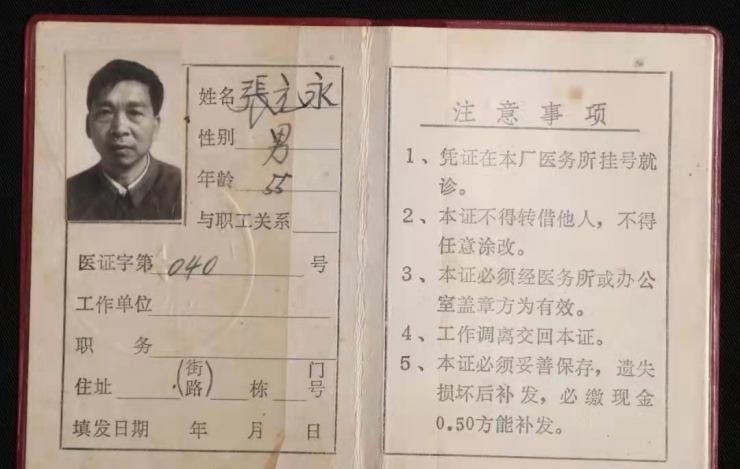 姓名 張立永
性别 男
年龄 55
与职工关系
医证字第 040 号
工作单位
职 务
住址 (街路) 栋 门号
填发日期 年 月 日
注意事项
1、凭证在本厂医务所挂号就
诊。
2、本证不得转借他人，不得
任意涂改。
3、本证必须经医务所或办公
室盖章方为有效。
4、工作调离交回本证。
5、本证必须妥善保存，遗失
损坏后补发，必缴现金
0.50方能补发。